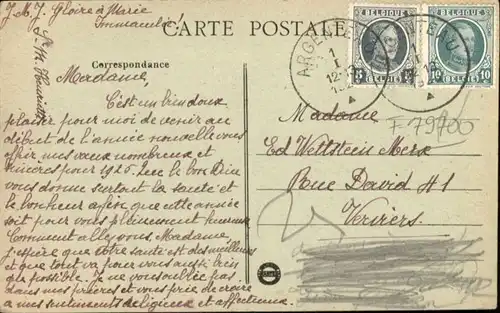 J. M. J. Gloire à Marie
Immaculée!
CARTE POSTALE
Correspondance
Madame,
C'est un bien doux
plaisir pour moi de venir au
début de l'année nouvelle vous
offrir mes vœux nombreux et
sincères pour 1926. Que le bon Dieu
vous donne surtout la santé et
le bonheur afin que cette année
soit pour vous pleinement heureuse
Comment allez vous, Madame,
j'espère que votre santé est des meilleures
et que tout va pour vous aussi bien
que possible. Je ne vous oublie pas
dans mes prières et vous prie de croire
a mes sentiments religieux et affectueux.
BELGIQUE
5
BELGIQUE
10 10
ARG
1
I
12-
Madame
Ed Wettstein Merx
Rue David 41
Verviers
F 79700